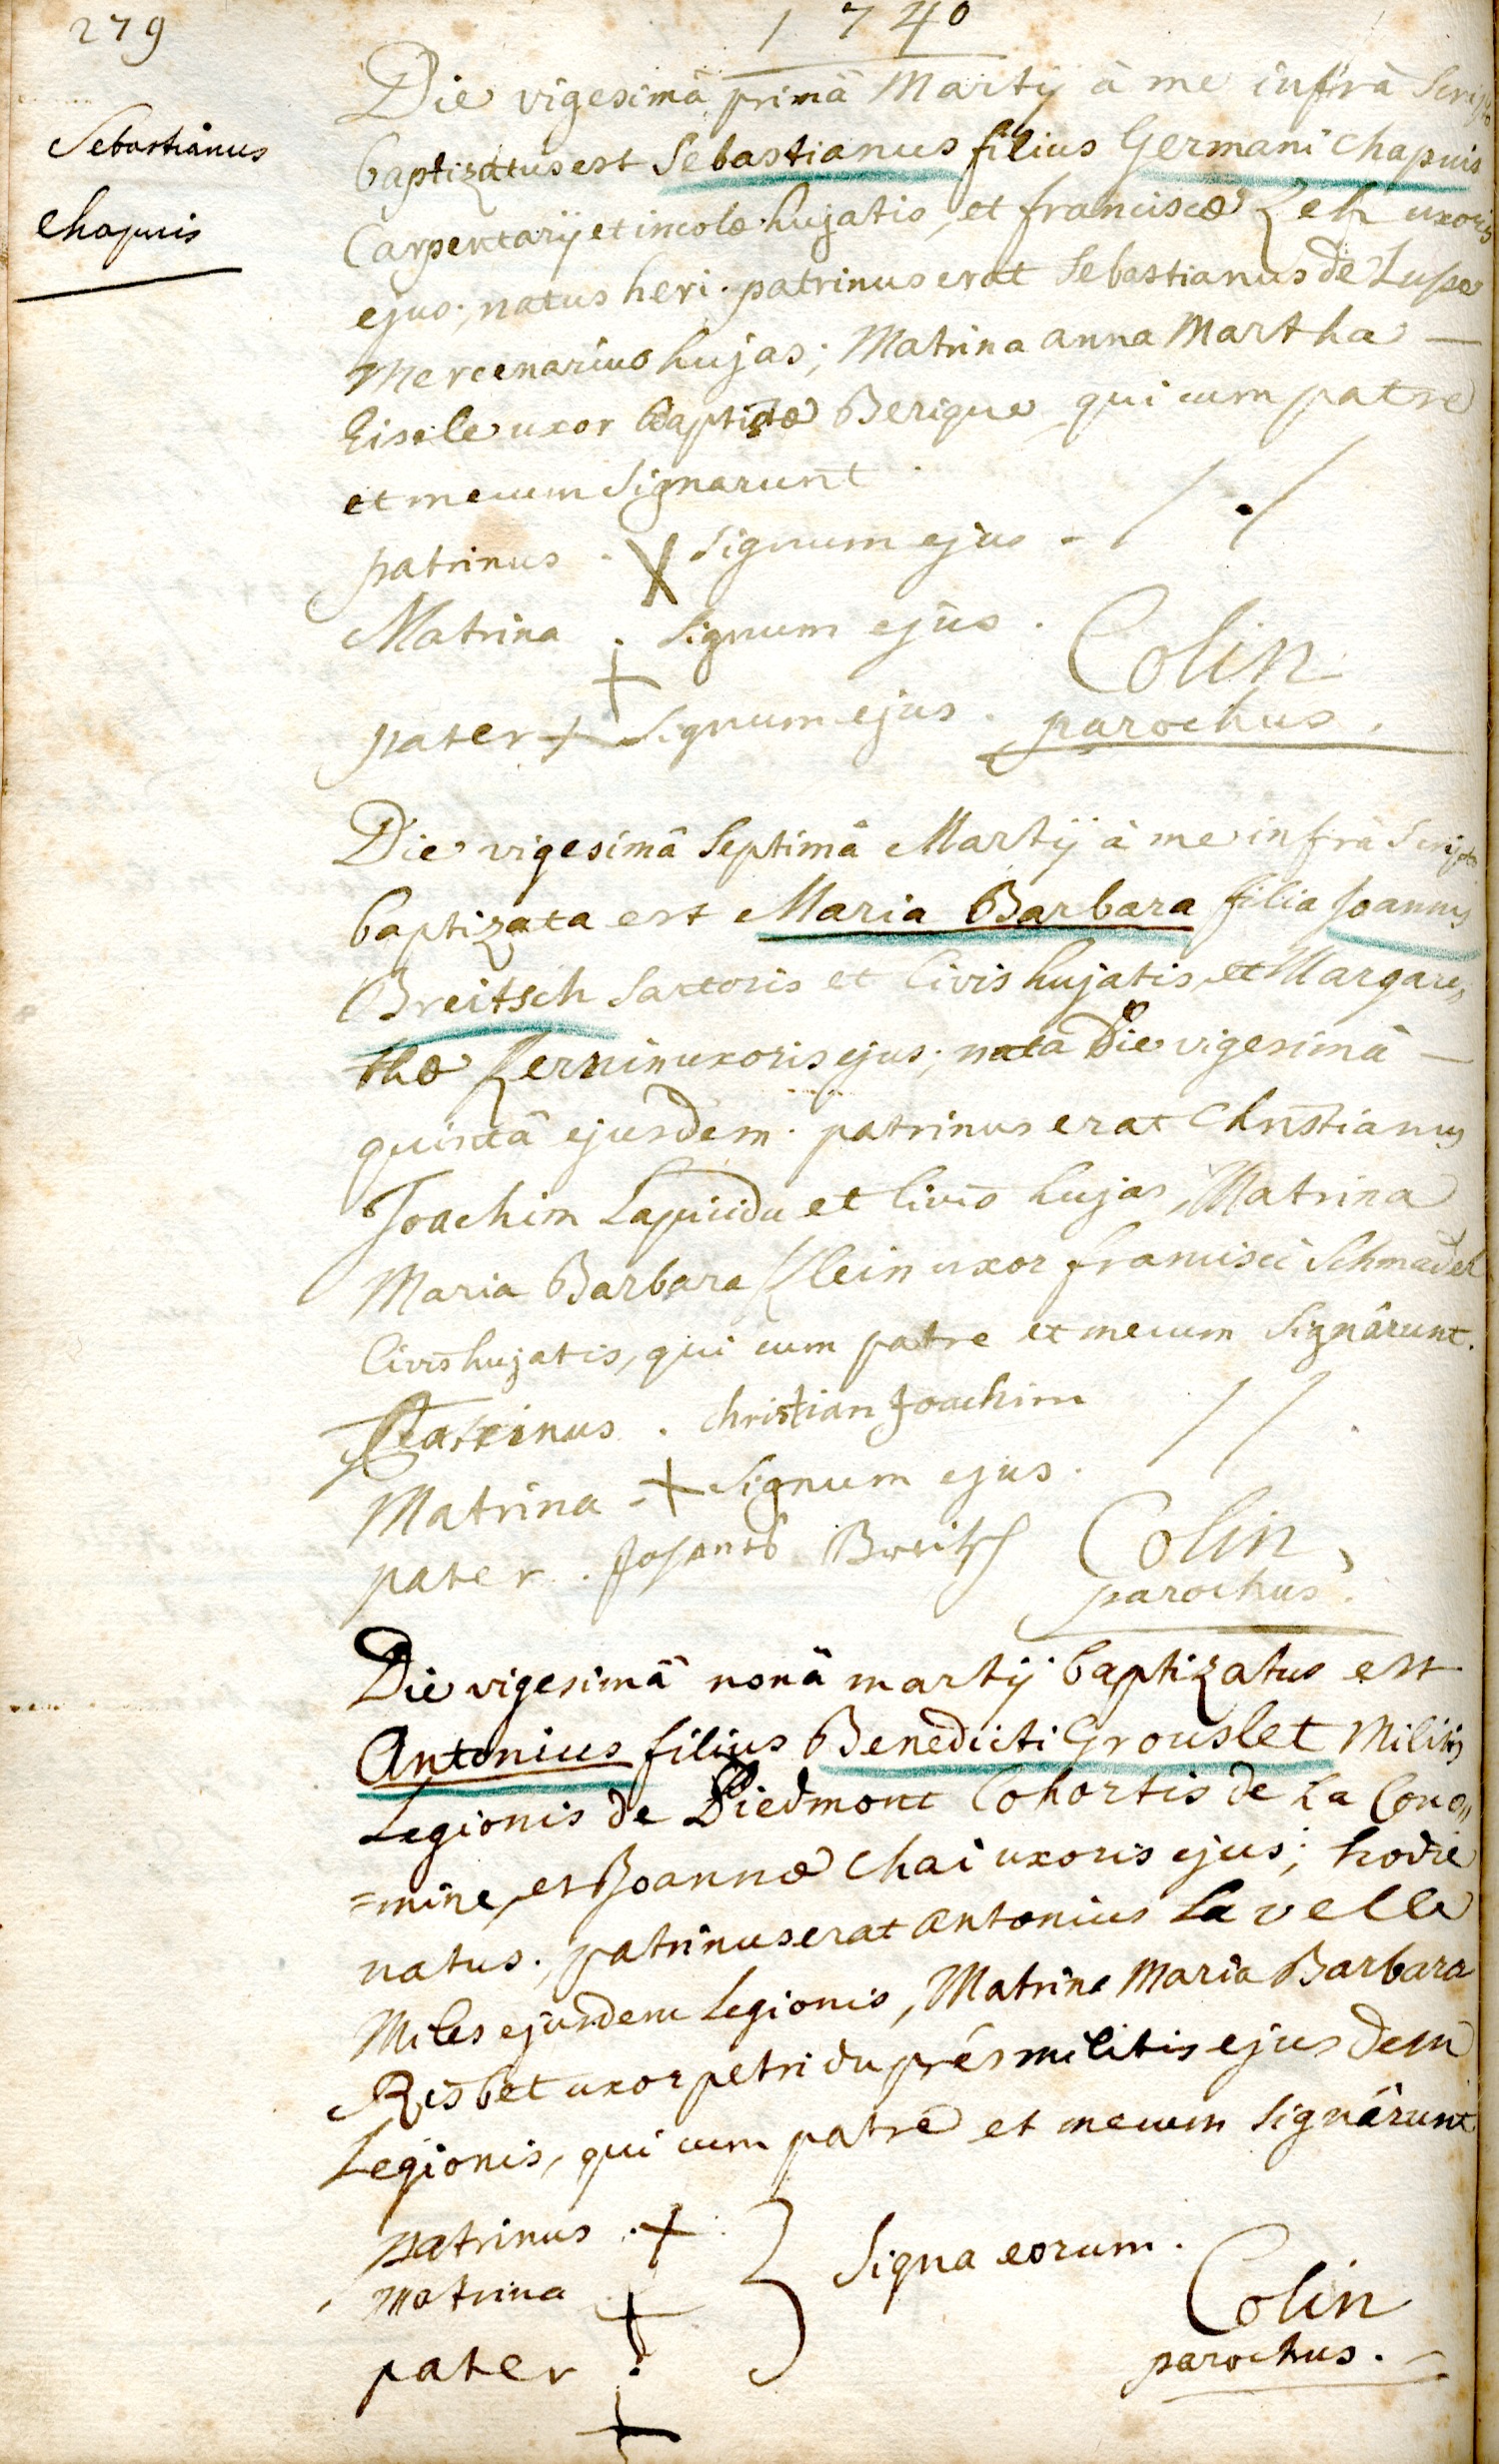 279
1740
Sebastianus
Chapuis
Die vigesimâ primâ Martÿ à me infrà Scripto
baptizatus est Sebastianus filius Germani Chapuis
Carpentarÿ et incolæ hujatis, et franciscæ Zeh uxoris
ejus; natus heri. patrinus erat Sebastianus de Lusse
Mercenarius hujas; Matrina anna Martha —
Eisele uxor Baptistæ Berique qui cum patre
et mecum Signarunt
patrinus . X Signum ejus -
Matrina . + Signum ejus .
Colin
pater + Signum ejus . parochus .
Die vigesimâ Septimâ Martÿ à me infrà Scripto
baptizata est Maria Barbara filia Joannis
Breitsch Sartoris et Civis hujatis, et Margare,,
thæ Zernin uxoris ejus; nata Die vigesimâ —
quintâ ejusdem. patrinus erat Christianus
Joachim Lapicida et Civis hujas, Matrina
Maria Barbara Klein uxor francisci Schmadel
Civis hujatis, qui cum patre et mecum Signârunt.
Patrinus . Christian Joachim
Matrina - + Signum ejus .
pater . Breitsch Colin,
parochus .
Die vigesimâ nonâ martÿ baptizatus est
Antonius filius Benedicti Grouslet Militis
Legionis de Piedmont Cohortis de La Cono,,
=mine, et Joannæ Chai uxoris ejus; hodie
natus., patrinus erat antonius Lavelle
Miles ejusdem Legionis, Matrina Maria Barbara
Risbet uxor petri duprés militis ejusdem
Legionis, qui cum patre et mecum Signârunt
patrinus . +
Matrina + } Signa eorum .
Colin
pater . + parochus . -